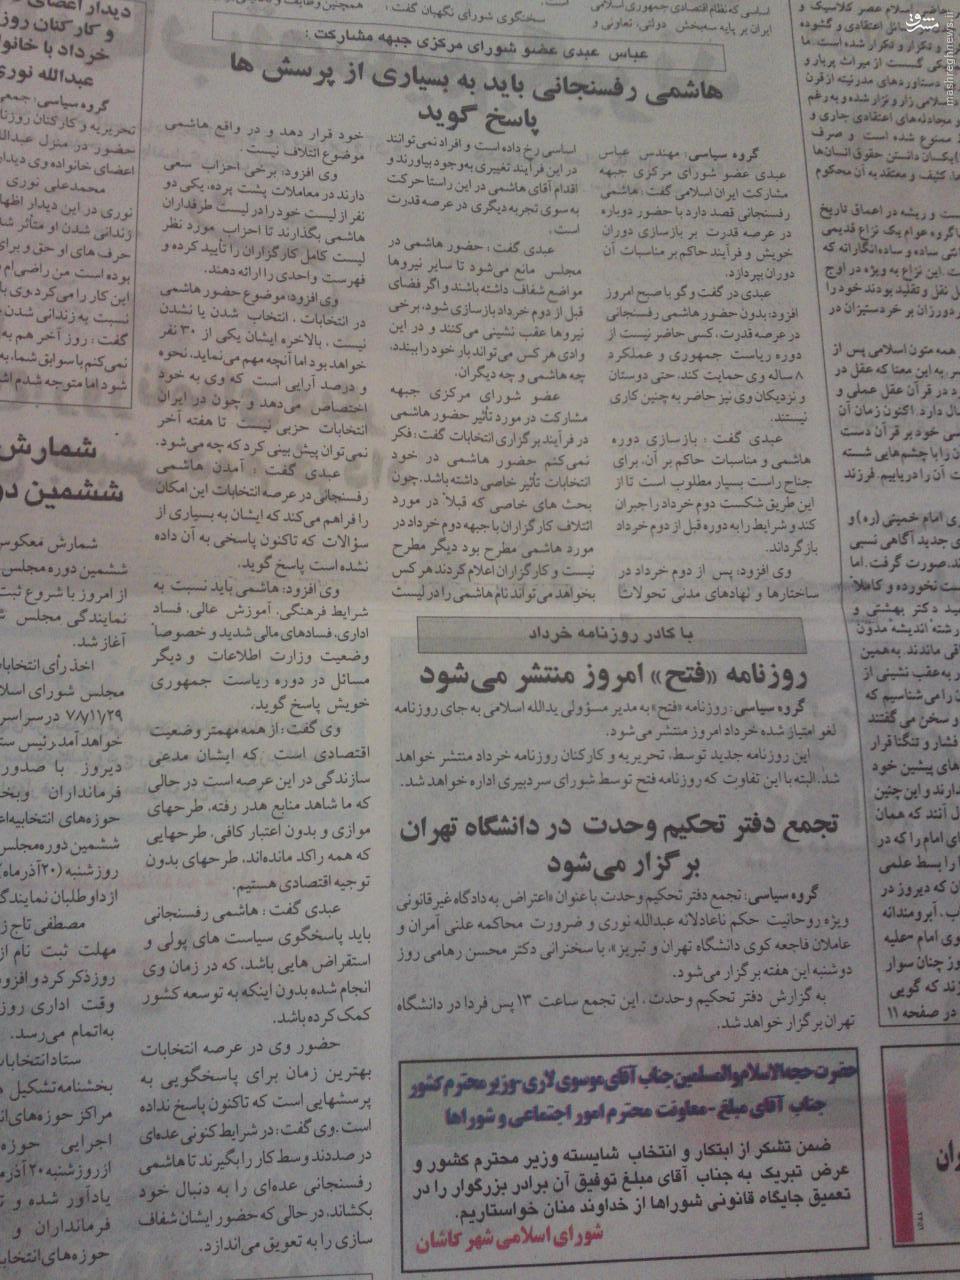 عباس عبدی عضو شورای مرکزی جبهه مشارکت :
هاشمی رفسنجانی باید به بسیاری از پرسش ها
پاسخ گوید
گروه سیاسی: مهندس عباس
عبدی عضو شورای مرکزی جبهه
مشارکت ایران اسلامی گفت: هاشمی
رفسنجانی قصد دارد با حضور دوباره
در عرصه قدرت بر بازسازی دوران
خویش و فرآیند حاکم بر مناسبات آن
دوران بپردازد.
عبدی در گفت و گو با صبح امروز
افزود: بدون حضور هاشمی رفسنجانی
در عرصه قدرت، کسی حاضر نیست از
دوره ریاست جمهوری و عملکرد
۸ ساله وی حمایت کند، حتی دوستان
و نزدیکان وی نیز حاضر به چنین کاری
نیستند.
عبدی گفت : بازسازی دوره
هاشمی و مناسبات حاکم بر آن، برای
جناح راست بسیار مطلوب است تا از
این طریق شکست دوم خرداد را جبران
کند و شرایط را به دوره قبل از دوم خرداد
بازگرداند.
وی افزود: پس از دوم خرداد در
ساختارها و نهادهای مدنی تحولات
اساسی رخ داده است و افراد نمی‌توانند
در این فرآیند تغییری به وجود بیاورند و
اقدام آقای هاشمی در این راستا حرکت
به سوی تجربه دیگری در عرصه قدرت
است.
عبدی گفت : حضور هاشمی در
مجلس مانع می‌شود تا سایر نیروها
مواضع شفاف داشته باشند و اگر فضای
قبل از دوم خرداد بازسازی شود، برخی
نیروها عقب نشینی می‌کنند و در این
وادی هر کس می‌تواند بار خود را ببندد،
چه هاشمی و چه دیگران.
عضو شورای مرکزی جبهه
مشارکت در مورد تأثیر حضور هاشمی
در فرآیند برگزاری انتخابات گفت: فکر
نمی‌کنم حضور هاشمی در خود
انتخابات تأثیر خاصی داشته باشد، چون
بحث های خاصی که قبلاً در مورد
ائتلاف کارگزاران با جبهه دوم خرداد در
مورد هاشمی مطرح بود دیگر مطرح
نیست و کارگزاران اعلام کردند هر کس
بخواهد می‌تواند نام هاشمی را در لیست
خود قرار دهد و در واقع هاشمی
موضوع ائتلاف نیست.
وی افزود: برخی احزاب سعی
دارند در معاملات پشت پرده، یکی دو
نفر از لیست خود را در لیست طرفداران
هاشمی بگذارند تا احزاب مورد نظر
لیست کامل کارگزاران را تأیید کرده و
فهرست واحدی را ارائه دهند.
وی افزود: موضوع حضور هاشمی
در انتخابات ، انتخاب شدن یا نشدن
نیست ، بالاخره ایشان یکی از ۳۰ نفر
خواهد بود اما آنچه مهم می‌نماید، نحوه
و درصد آرایی است که وی به خود
اختصاص می‌دهد و چون در ایران
انتخابات حزبی نیست تا هفته آخر
نمی‌توان پیش بینی کرد که چه می‌شود.
عبدی گفت : آمدن هاشمی
رفسنجانی در عرصه انتخابات این امکان
را فراهم می‌کند که ایشان به بسیاری از
سؤالات که تاکنون پاسخی به آن داده
نشده است پاسخ گوید.
وی افزود: هاشمی باید نسبت به
شرایط فرهنگی، آموزش عالی، فساد
اداری، فسادهای مالی شدید و خصوصاً
وضعیت وزارت اطلاعات و دیگر
مسائل در دوره ریاست جمهوری
خویش پاسخ گوید.
وی گفت: از همه مهمتر وضعیت
اقتصادی است که ایشان مدعی
سازندگی در این عرصه است در حالی
که ما شاهد منابع هدر رفته، طرحهای
موازی و بدون اعتبار کافی، طرحهایی
که همه راکد مانده‌اند، طرحهای بدون
توجیه اقتصادی هستیم.
عبدی گفت : هاشمی رفسنجانی
باید پاسخگوی سیاست های پولی و
استقراض هایی باشد، که در زمان وی
انجام شده بدون اینکه به توسعه کشور
کمک کرده باشد.
حضور وی در عرصه انتخابات
بهترین زمان برای پاسخگویی به
پرسشهایی است که تاکنون پاسخ نداده
است. وی گفت: در شرایط کنونی عده‌ای
در صددند وسط کار را بگیرند تا هاشمی
رفسنجانی عده‌ای را به دنبال خود
بکشاند، در حالی که حضور ایشان شفاف
سازی را به تعویق می‌اندازد.
با کادر روزنامه خرداد
روزنامه «فتح» امروز منتشر می‌شود
گروه سیاسی: روزنامه «فتح» به مدیر مسؤولی یدالله اسلامی به جای روزنامه
لغو امتیاز شده خرداد امروز منتشر می‌شود.
این روزنامه جدید توسط، تحریریه و کارکنان روزنامه خرداد منتشر خواهد
شد. البته با این تفاوت که روزنامه فتح توسط شورای سردبیری اداره خواهد شد.
تجمع دفتر تحکیم وحدت در دانشگاه تهران
برگزار می‌شود
گروه سیاسی: تجمع دفتر تحکیم وحدت با عنوان «اعتراض به دادگاه غیرقانونی
ویژه روحانیت حکم ناعادلانه عبدالله نوری و ضرورت محاکمه علنی آمران و
عاملان فاجعه کوی دانشگاه تهران و تبریز»، با سخنرانی دکتر محسن رهامی روز
دوشنبه این هفته برگزار می‌شود.
به گزارش دفتر تحکیم وحدت ، این تجمع ساعت ۱۳ پس فردا در دانشگاه
تهران برگزار خواهد شد.
حضرت حجه الاسلام والمسلمین جناب آقای موسوی لاری-وزیر محترم کشور
جناب آقای مبلغ - معاونت محترم امور اجتماعی و شوراها
ضمن تشکر از ابتکار و انتخاب شایسته وزیر محترم کشور و
عرض تبریک به جناب آقای مبلغ توفیق آن برادر بزرگوار را در
تعمیق جایگاه قانونی شوراها از خداوند منان خواستاریم.
شورای اسلامی شهر کاشان
گروه سیاسی: جمعی
حضور در منزل عبدالله
اعضای خانواده وی دیدار
محمدعلی نوری
نوری در این دیدار اظهار
زندانی شدن او متأثر شد
حرف های او حق و برای
بوده است من راضی‌ام
این کار را می‌کرد. وی با
نسبت به زندانی شدن
گفت : روز آخر هم به
شمارش
ششمین دو
شمارش معکوس
ششمین دوره مجلس
از امروز با شروع ثبت
نمایندگی مجلس
آغاز شد.
اخذ رأی انتخابات
مجلس شورای اسلا
۷۸/۱۱/۲۹ در سراسر
خواهد آمد. رئیس ستاد
دیروز با صدور
فرمانداران وبخش
حوزه‌های انتخابیه اعلام
ششمین دوره مجلس
روزشنبه (۲۰ آذرماه)
از داوطلبان نمایندگی
مصطفی تاج ز
مهلت ثبت نام از
روز ذکر کرد و افزود
وقت اداری روز
به اتمام می‌رسد.
ستاد انتخابات
بخشنامه تشکیل
مراکز حوزه‌های
اجرایی حوزه
از روز شنبه ۲۰ آذر ماه
یادآور شده و
فرمانداران و
حوزه‌های انتخابی
در صفحه ۱۱
مشرق
mashreghnews.ir